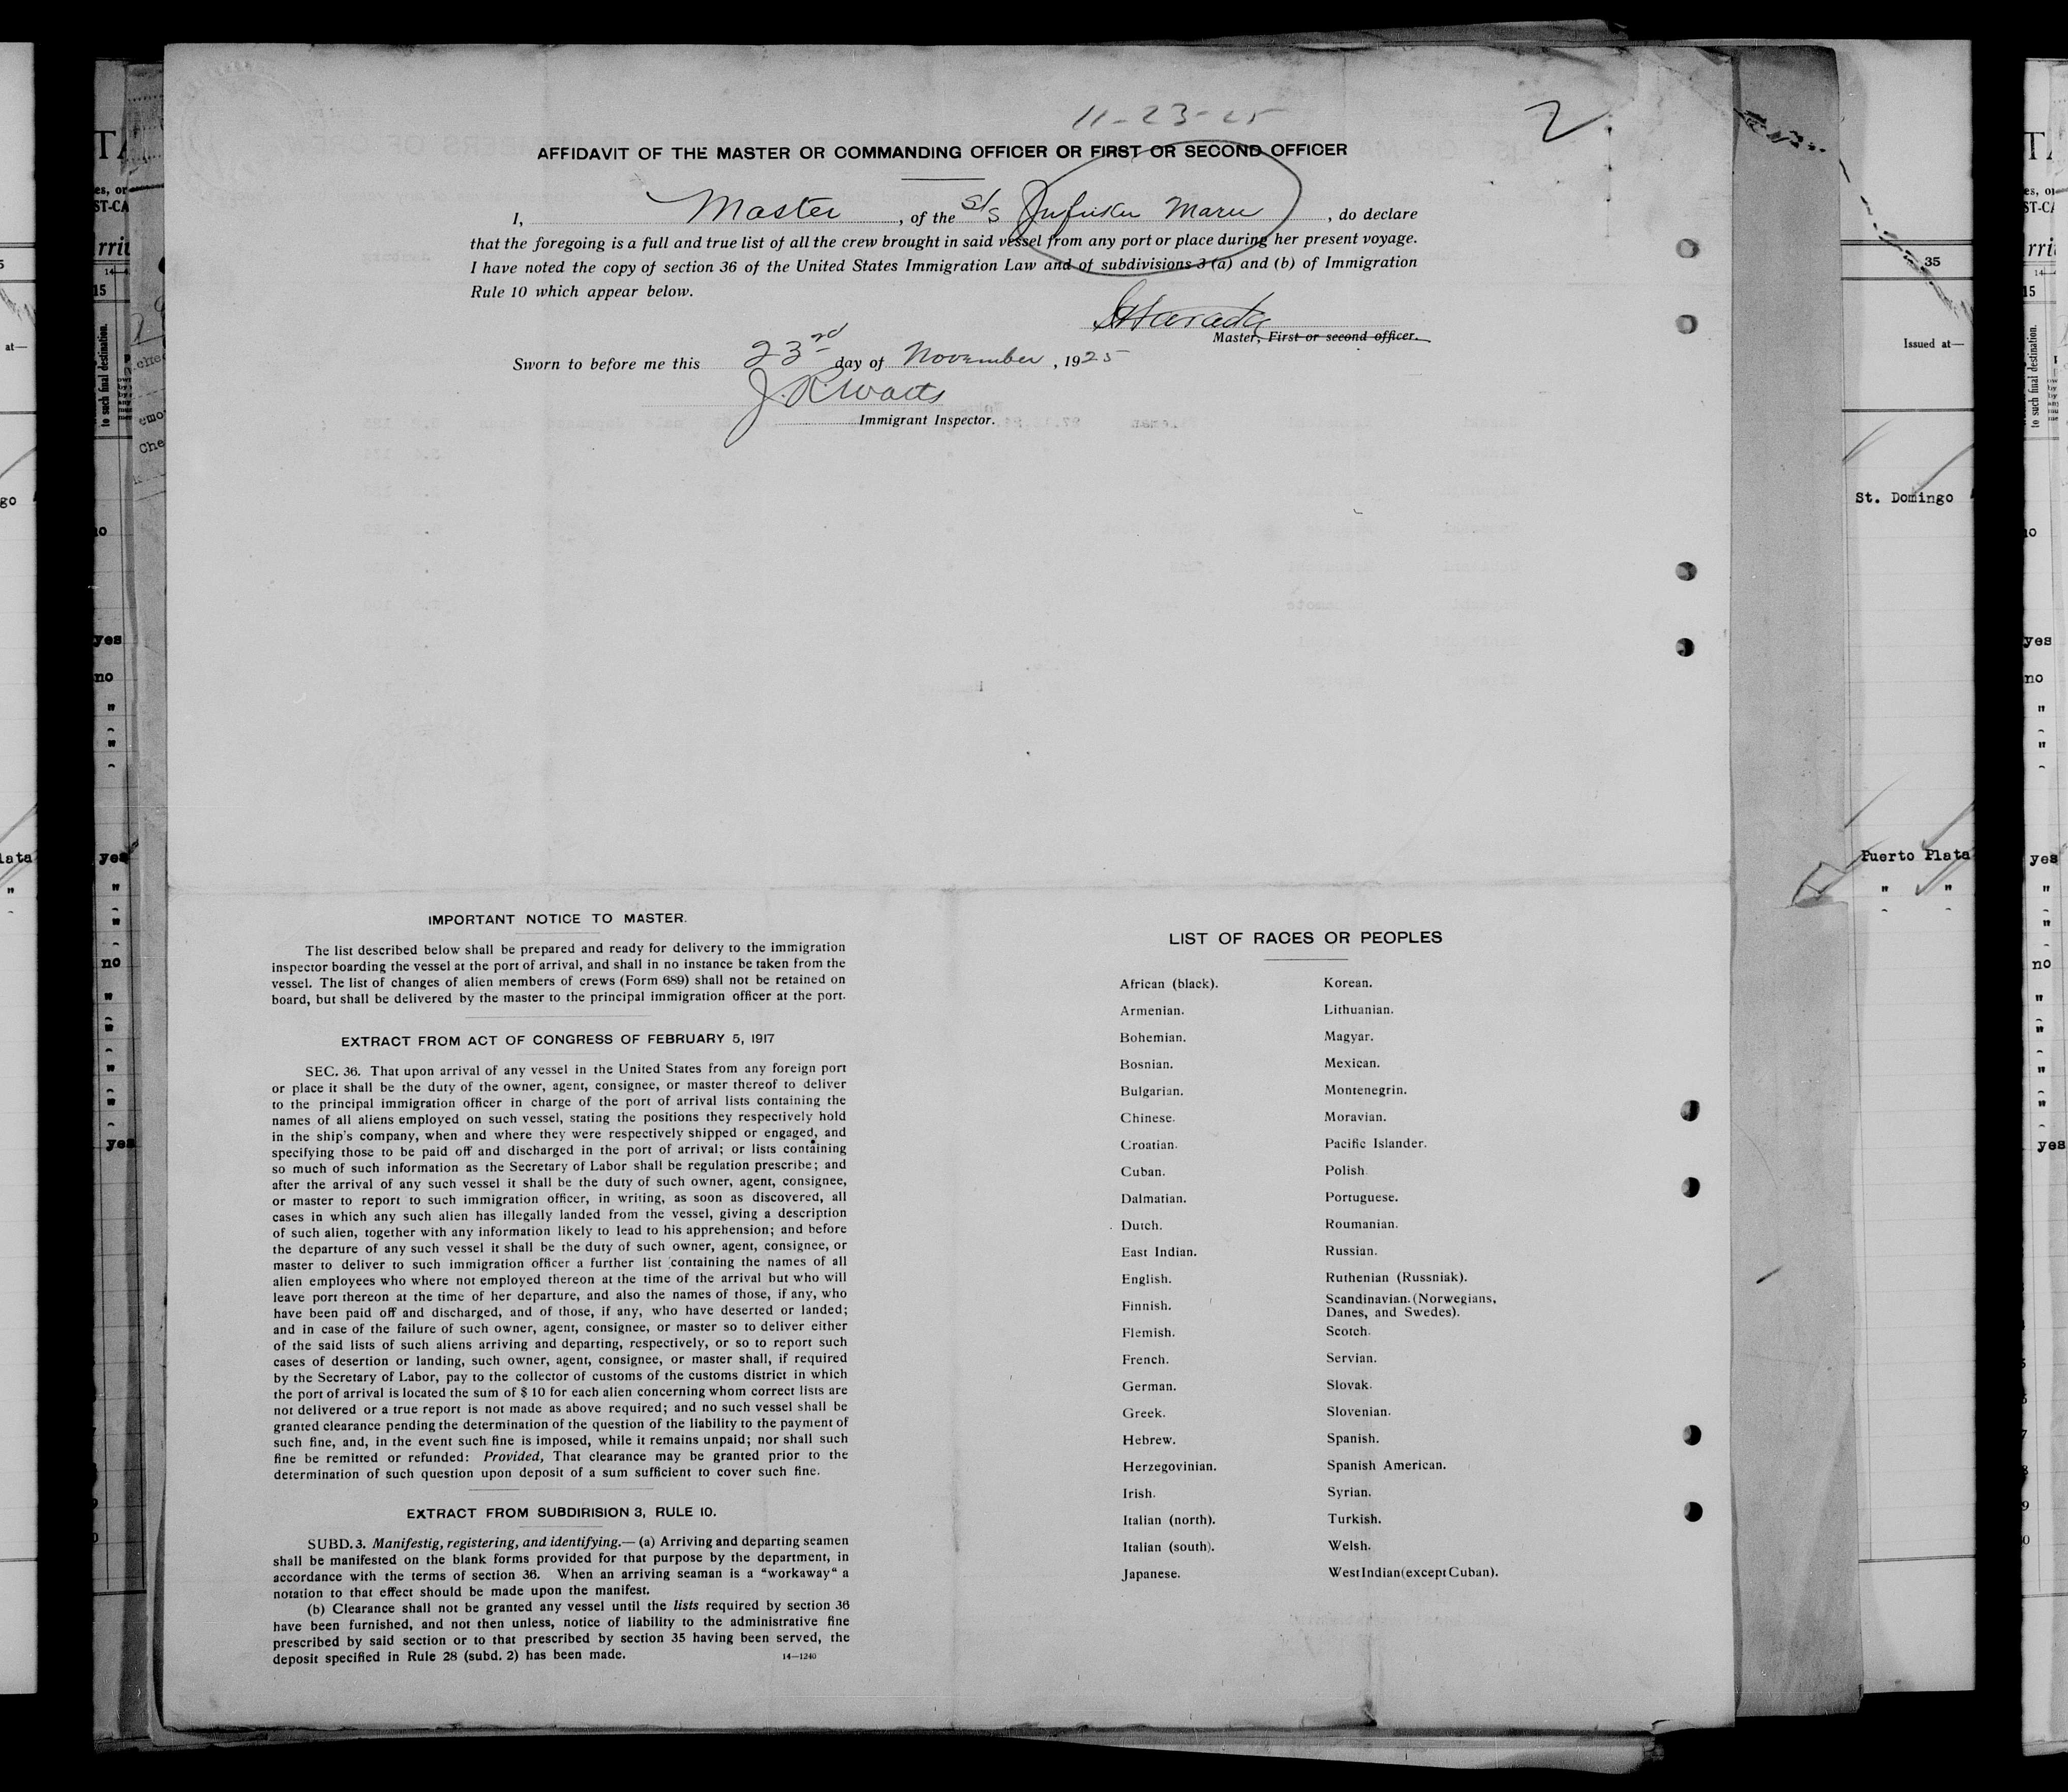 11-23-25
2
AFFIDAVIT OF THE MASTER OR COMMANDING OFFICER OR FIRST OR SECOND OFFICER
I, Master, of the S/S Jufuku Maru, do declare
that the foregoing is a full and true list of all the crew brought in said vessel from any port or place during her present voyage.
I have noted the copy of section 36 of the United States Immigration Law and of subdivisions 3 (a) and (b) of Immigration
Rule 10 which appear below.
Harada
Master, First or second officer.
Sworn to before me this 23rd day of November, 1925
J. R. Watts
Immigrant Inspector.
IMPORTANT NOTICE TO MASTER.
The list described below shall be prepared and ready for delivery to the immigration
inspector boarding the vessel at the port of arrival, and shall in no instance be taken from the
vessel. The list of changes of alien members of crews (Form 689) shall not be retained on
board, but shall be delivered by the master to the principal immigration officer at the port.
EXTRACT FROM ACT OF CONGRESS OF FEBRUARY 5, 1917
SEC. 36. That upon arrival of any vessel in the United States from any foreign port
or place it shall be the duty of the owner, agent, consignee, or master thereof to deliver
to the principal immigration officer in charge of the port of arrival lists containing the
names of all aliens employed on such vessel, stating the positions they respectively hold
in the ship's company, when and where they were respectively shipped or engaged, and
specifying those to be paid off and discharged in the port of arrival; or lists containing
so much of such information as the Secretary of Labor shall be regulation prescribe; and
after the arrival of any such vessel it shall be the duty of such owner, agent, consignee,
or master to report to such immigration officer, in writing, as soon as discovered, all
cases in which any such alien has illegally landed from the vessel, giving a description
of such alien, together with any information likely to lead to his apprehension; and before
the departure of any such vessel it shall be the duty of such owner, agent, consignee, or
master to deliver to such immigration officer a further list containing the names of all
alien employees who where not employed thereon at the time of the arrival but who will
leave port thereon at the time of her departure, and also the names of those, if any, who
have been paid off and discharged, and of those, if any, who have deserted or landed;
and in case of the failure of such owner, agent, consignee, or master so to deliver either
of the said lists of such aliens arriving and departing, respectively, or so to report such
cases of desertion or landing, such owner, agent, consignee, or master shall, if required
by the Secretary of Labor, pay to the collector of customs of the customs district in which
the port of arrival is located the sum of $ 10 for each alien concerning whom correct lists are
not delivered or a true report is not made as above required; and no such vessel shall be
granted clearance pending the determination of the question of the liability to the payment of
such fine, and, in the event such fine is imposed, while it remains unpaid; nor shall such
fine be remitted or refunded: Provided, That clearance may be granted prior to the
determination of such question upon deposit of a sum sufficient to cover such fine.
EXTRACT FROM SUBDIRISION 3, RULE 10.
SUBD. 3. Manifestig, registering, and identifying.— (a) Arriving and departing seamen
shall be manifested on the blank forms provided for that purpose by the department, in
accordance with the terms of section 36. When an arriving seaman is a "workaway" a
notation to that effect should be made upon the manifest.
(b) Clearance shall not be granted any vessel until the lists required by section 36
have been furnished, and not then unless, notice of liability to the administrative fine
prescribed by said section or to that prescribed by section 35 having been served, the
deposit specified in Rule 28 (subd. 2) has been made.
14—1240
LIST OF RACES OR PEOPLES
African (black). Korean.
Armenian. Lithuanian.
Bohemian. Magyar.
Bosnian. Mexican.
Bulgarian. Montenegrin.
Chinese. Moravian.
Croatian. Pacific Islander.
Cuban. Polish.
Dalmatian. Portuguese.
Dutch. Roumanian.
East Indian. Russian.
English. Ruthenian (Russniak).
Finnish. Scandinavian. (Norwegians,
Danes, and Swedes).
Flemish. Scotch.
French. Servian.
German. Slovak.
Greek. Slovenian.
Hebrew. Spanish.
Herzegovinian. Spanish American.
Irish. Syrian.
Italian (north). Turkish.
Italian (south). Welsh.
Japanese. West Indian (except Cuban).
35
Issued at—
St. Domingo
Puerto Plata
" "
to such final destination.
yes
no
yes
no
yes